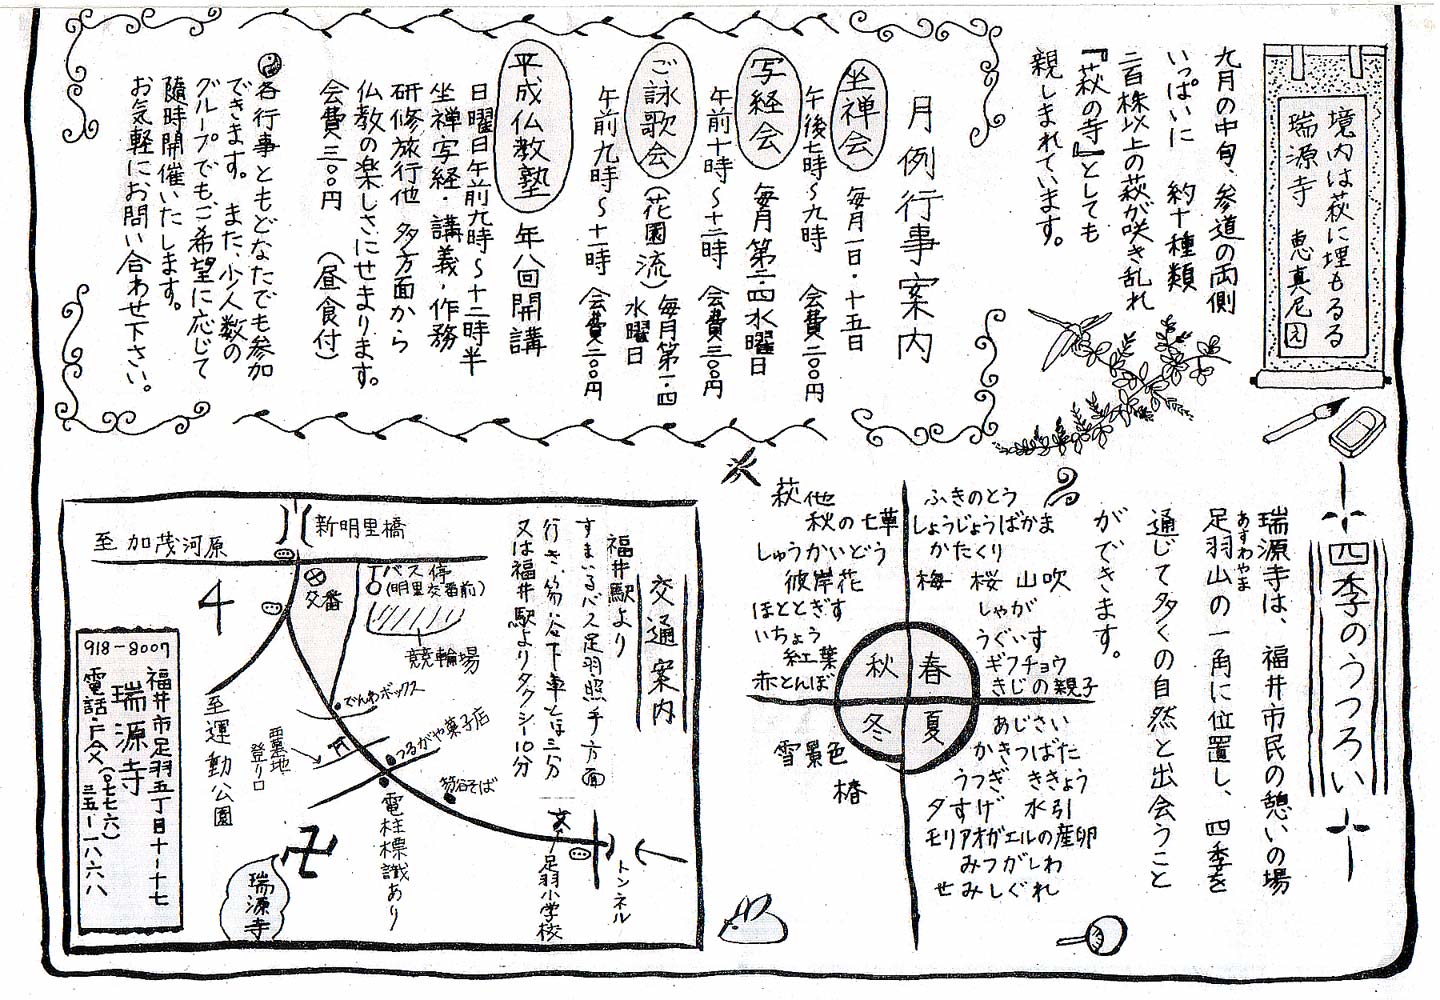 境内は萩に埋もるる
瑞源寺 恵真尼
九月の中旬、参道の両側
いっぱいに 約十種類
二百株以上の萩が咲き乱れ
『萩の寺』としても
親しまれています。
月例行事案内
坐禅会 毎月一日・十五日
午後七時〜九時 会費二〇〇円
写経会 毎月第二・四水曜日
午前十時〜十二時 会費三〇〇円
ご詠歌会(花園流)毎月第一・四
水曜日
午前九時〜十一時 会費二〇〇円
平成仏教塾 年八回開講
日曜日午前九時〜十二時半
坐禅写経・講義・作務
研修旅行他 多方面から
仏教の楽しさにせまります。
会費三〇〇円 (昼食付)
各行事ともどなたでも参加
できます。また、少人数の
グループでもご希望に応じて
随時開催いたします。
お気軽にお問い合わせ下さい。
四季のうつろい
瑞源寺は、福井市民の憩いの場
あすわやま
足羽山の一角に位置し、四季を
通じて多くの自然と出会うこと
ができます。
春
ふきのとう
しょうじょうばかま
かたくり
梅 桜 山吹
しゃが
うぐいす
ギフチョウ
きじの親子
夏
あじさい
かきつばた
うつぎ ききょう
夕すげ 水引
モリアオガエルの産卵
みつがしわ
せみしぐれ
秋
萩他
秋の七草
しゅうかいどう
彼岸花
ほととぎす
いちょう
紅葉
赤とんぼ
冬
雪景色
椿
交通案内
福井駅より
すまいるバス足羽照手方面
行き、笏谷下車とほ三分
又は福井駅よりタクシー10分
新明里橋
至 加茂河原
交番
バス停
(明里交番前)
競輪場
でんわボックス
つるがや菓子店
笏谷そば
西墓地
登り口
至運動公園
電柱標識あり
文 足羽小学校
トンネル
卍
瑞源寺
4
918-8007
福井市足羽五丁目十-十七
瑞源寺
電話・FAX(〇七七六)
三五-一八六八